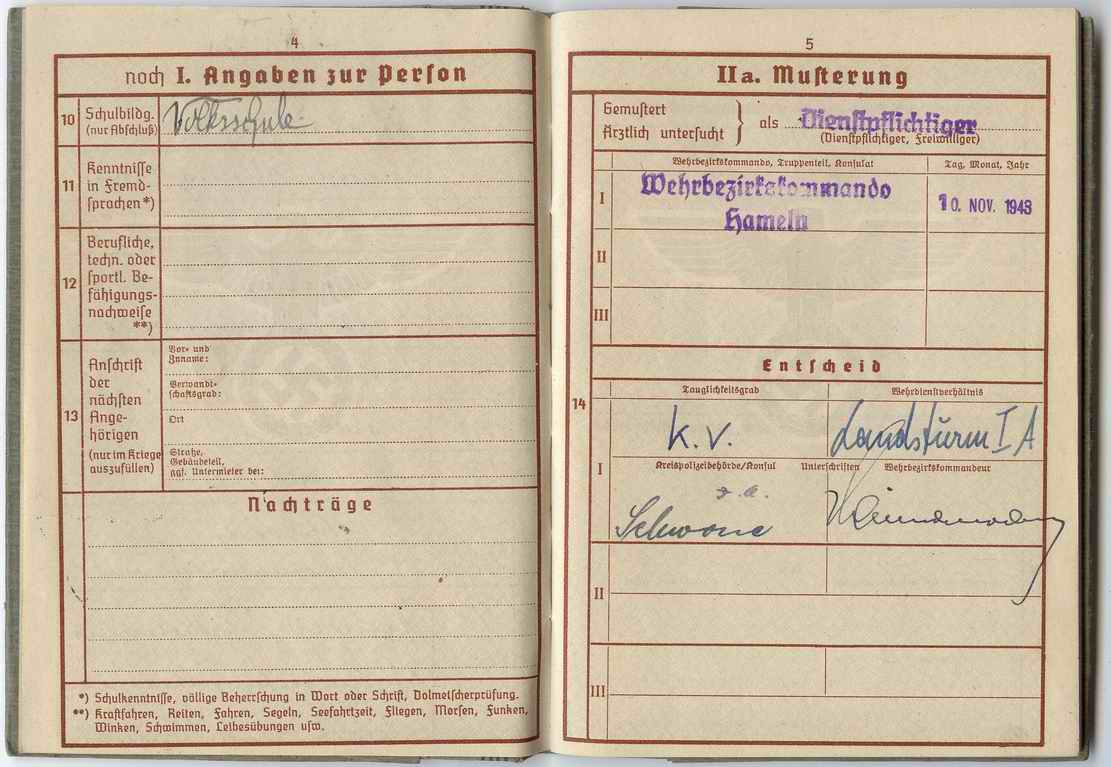 4
noch I. Angaben zur Person
10 Schulbildg.
(nur Abschluß)
Volksschule
11 Kenntnisse
in Fremd-
sprachen*)
12 Berufliche,
techn. oder
sportl. Be-
fähigungs-
nachweise
**)
13 Anschrift
der
nächsten
Ange-
hörigen
(nur im Kriege
auszufüllen)
Vor- und
Zuname:
Verwandt-
schaftsgrad:
Ort
Straße,
Gebäudeteil,
ggf. Untermieter bei:
Nachträge
*) Schulkenntnisse, völlige Beherrschung in Wort oder Schrift, Dolmetscherprüfung.
**) Kraftfahren, Reiten, Fahren, Segeln, Seefahrtzeit, Fliegen, Morsen, Funken,
Winken, Schwimmen, Leibesübungen usw.
5
IIa. Musterung
Gemustert
Ärztlich untersucht } als Dienstpflichtiger
(Dienstpflichtiger, Freiwilliger)
Wehrbezirkskommando, Truppenteil, Konsulat Tag, Monat, Jahr
I Wehrbezirkskommando
Hameln
10. NOV. 1943
II
III
Entscheid
14
Tauglichkeitsgrad Wehrdienstverhältnis
k.v. Landsturm I A
I
Kreispolizeibehörde/Konsul Unterschriften Wehrbezirkskommandeur
II
III